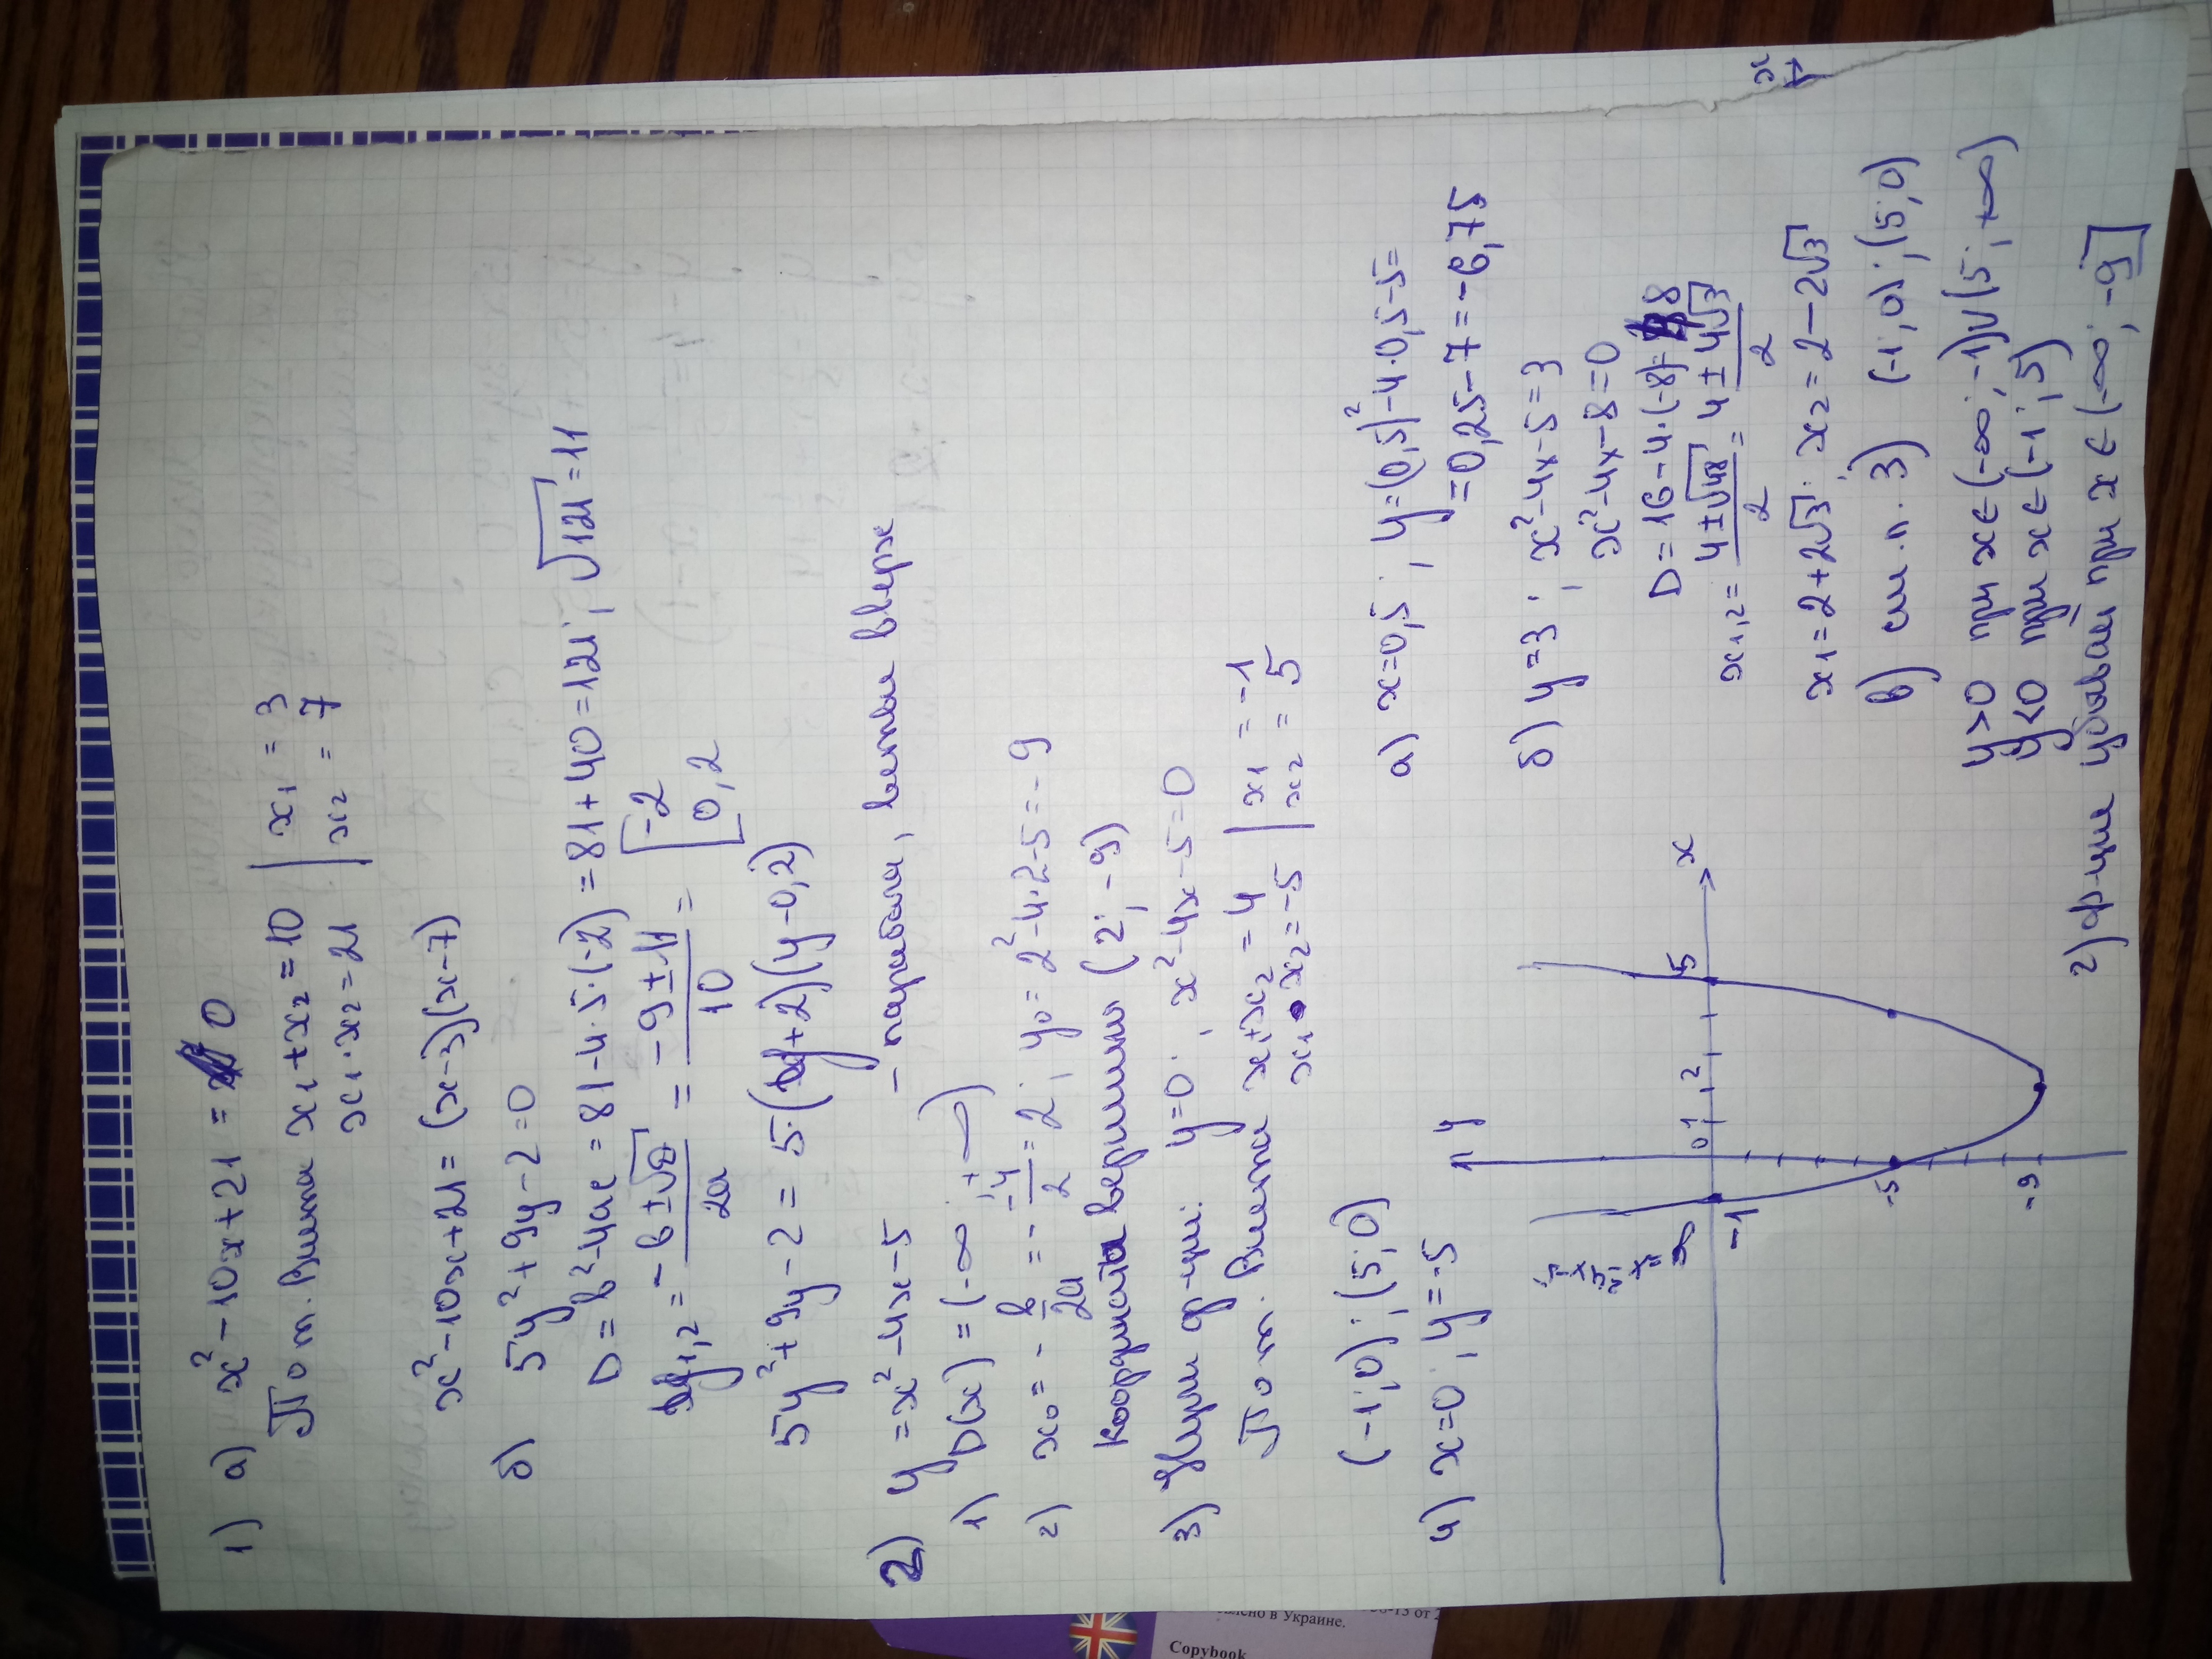 1) а) x² - 10x + 21 = 0
По т. Виета x₁ + x₂ = 10 | x₁ = 3
x₁ · x₂ = 21 | x₂ = 7
x² - 10x + 21 = (x-3)(x-7)
б) 5y² + 9y - 2 = 0
D = b² - 4ac = 81 - 4·5·(-2) = 81 + 40 = 121; √121 = 11
y₁,₂ = (-b ± √D)/2a = (-9 ± 11)/10 = [-2 [0,2
5y² + 9y - 2 = 5·(y+2)(y-0,2)
2) y = x² - 4x - 5 - парабола, ветви вверх
1) D(x) = (-∞; +∞)
2) x₀ = -b/2a = - -4/2 = 2; y₀ = 2² - 4·2 - 5 = -9
Координата вершины (2; -9)
3) Нули ф-ции: y = 0; x² - 4x - 5 = 0
По т. Виета x₁ + x₂ = 4 | x₁ = -1
x₁ · x₂ = -5 | x₂ = 5
(-1; 0); (5; 0)
4) x = 0; y = -5
y
x
0 1 2 5
-1
-5
-9
а) x = 0,5; y = (0,5)² - 4·0,5 - 5 =
= 0,25 - 7 = -6,75
б) y = 3; x² - 4x - 5 = 3
x² - 4x - 8 = 0
D = 16 - 4·(-8) =
x₁,₂ = (4 ± √48)/2 = (4 ± 4√3)/2
x₁ = 2 + 2√3; x₂ = 2 - 2√3
в) см. п. 3) (-1; 0); (5; 0)
y > 0 при x ∈ (-∞; -1) ∪ (5; +∞)
y < 0 при x ∈ (-1; 5)
г) ф-ция убывает при x ∈ (-∞; -9]
в Украине.
Copybook